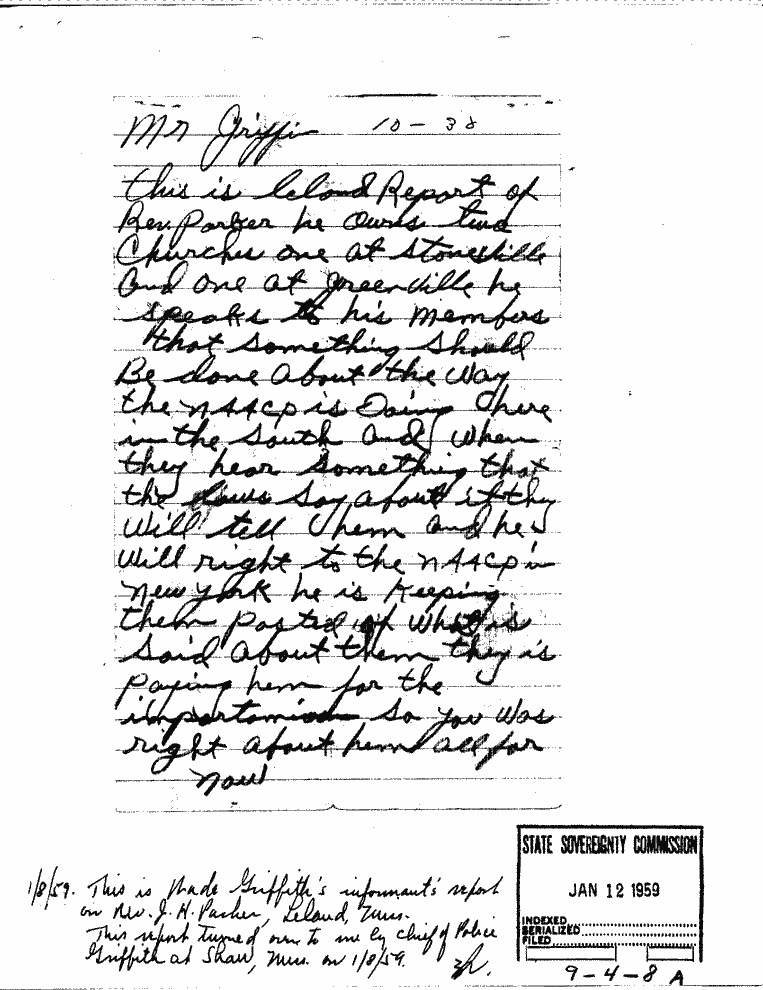 Mr Griffin 10-38
this is leland Report of
Rev. Parker he owns two
Churches one at Stoneville
and one at greenville he
speaks to his members
that something Should
Be done about the way
the NAACP is Doing there
in the South and when
they hear something that
the laws say about it they
will tell them and he
will right to the NAACP in
New York he is Keeping
them posted of what is
said about them they is
paying hem for the
so you was
right about hem all for
now
1/8/59. This is Griffith's informant's report
on Rev. J. H. Parker, Leland, Miss.
This report turned over to me by chief of Police
Griffith at Shaw, Miss. on 1/8/59.
STATE SOVEREIGNTY COMMISSION
JAN 12 1959
INDEXED
SERIALIZED
FILED
9-4-8 A